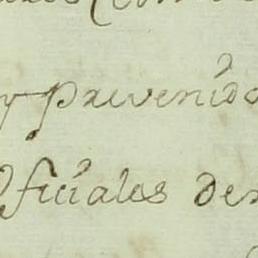 y prevenido
Oficiales de